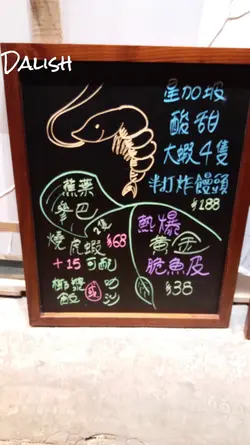 DALISH
星加坡
酸甜
大蝦4隻
半打炸饅頭
$188
蕉葉
參巴
燒虎蝦
2隻
$68
+15可配
椰漿
飯
或
叻
沙
熱爆
黃金
脆魚皮
$38